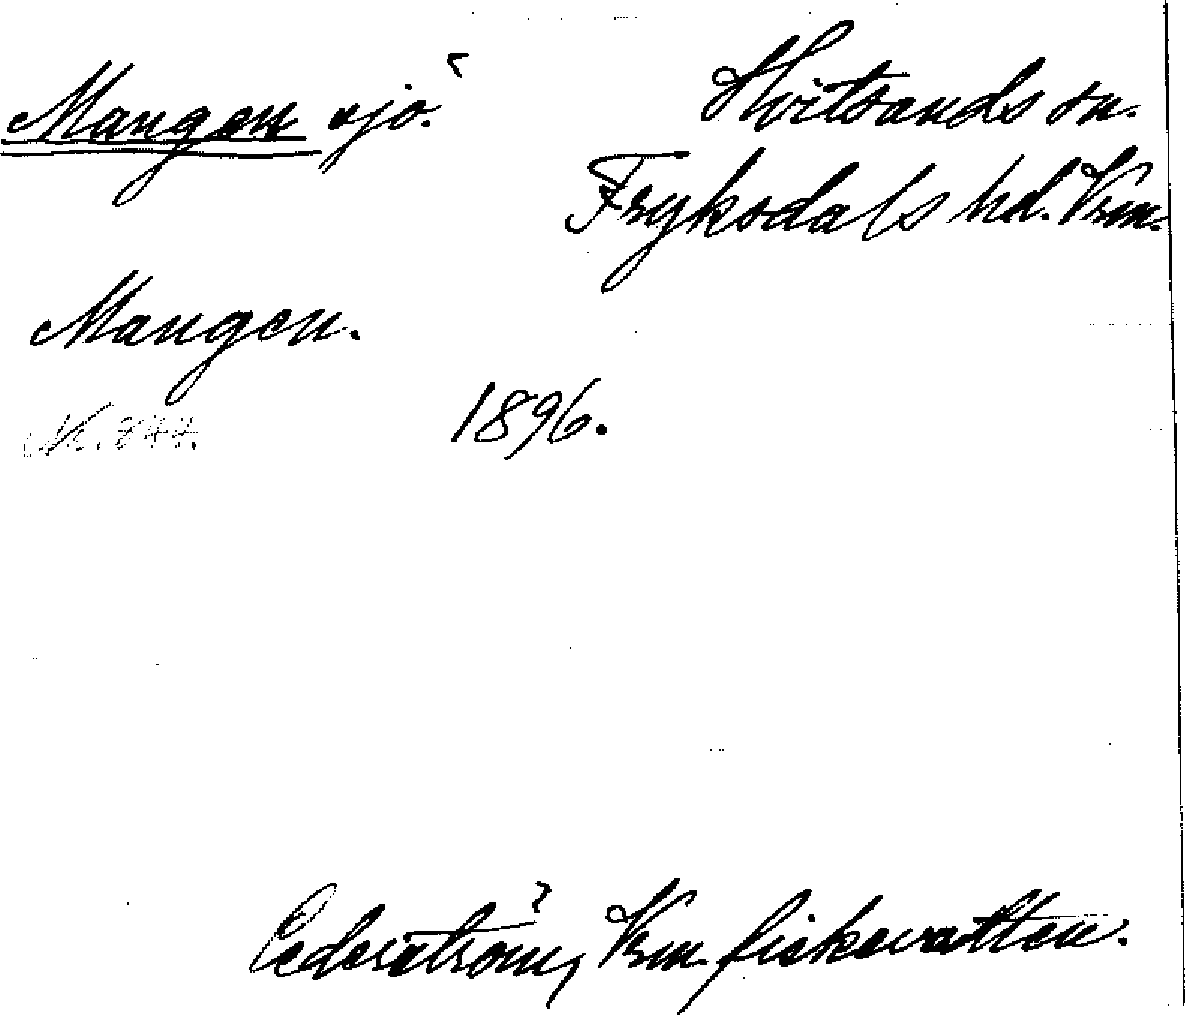 Mangen sjö.
Hvitsands sn.
Fryksdals hd. Vrm.
Mangen.
1896.
Cederström, Vrm. fiskevatten.